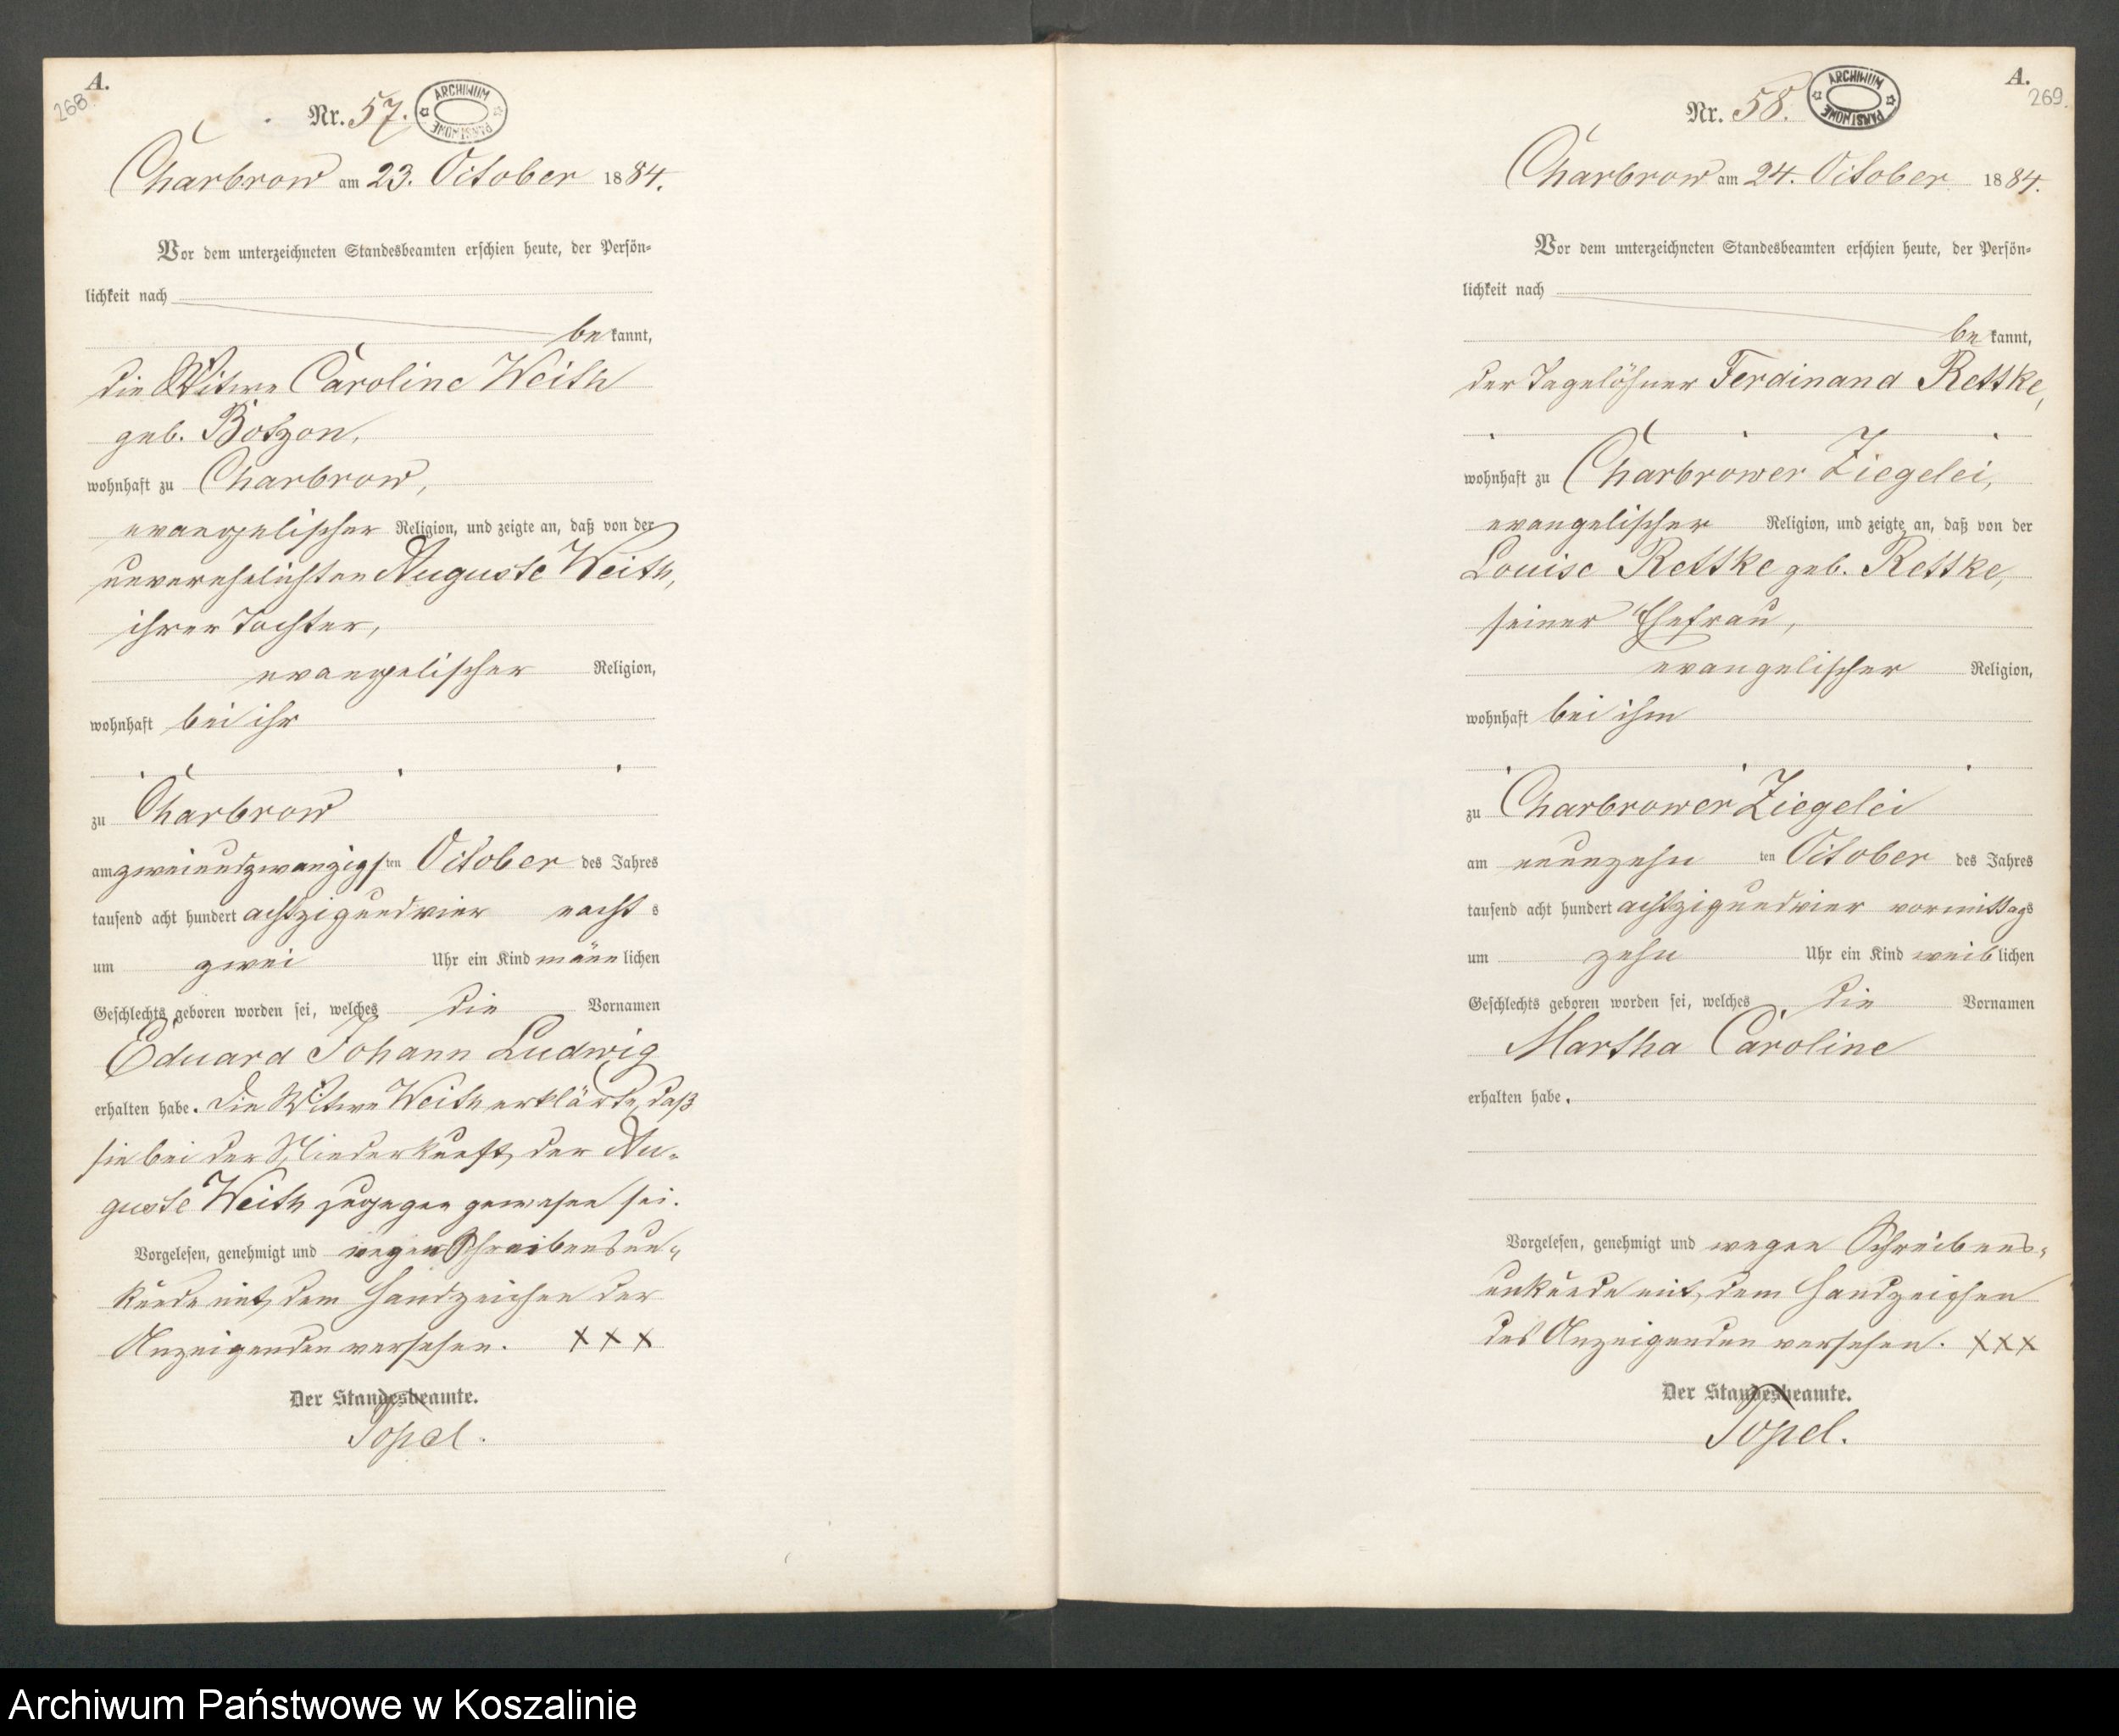 A.
268
Nr. 57.
ARCHIWUM PAŃSTWOWE
Charbrow am 23. October 1884.
Vor dem unterzeichneten Standesbeamten erschien heute, der Persön-
lichkeit nach
bekannt,
die Witwe Caroline Weith
geb. Botzon,
wohnhaft zu Charbrow,
evangelischer Religion, und zeigte an, daß von der
unverehelichten Auguste Weith,
ihrer Tochter,
evangelischer Religion,
wohnhaft bei ihr
zu Charbrow
am zweiundzwanzigsten October des Jahres
tausend acht hundert achtzigundvier nachts
um zwei Uhr ein Kind männlichen
Geschlechts geboren worden sei, welches die Vornamen
Eduard Johann Ludwig
erhalten habe. Die Witwe Weith erklärte, daß
sie bei der Niederkunft der Au-
guste Weith zugegen gewesen sei.
Vorgelesen, genehmigt und wegen Schreibensun-
kunde mit dem Handzeichen der
Anzeigenden versehen. XXX
Der Standesbeamte.
Topel.
A.
269.
Nr. 58.
ARCHIWUM PAŃSTWOWE
Charbrow am 24. October 1884.
Vor dem unterzeichneten Standesbeamten erschien heute, der Persön-
lichkeit nach
bekannt,
der Tagelöhner Ferdinand Rettke,
wohnhaft zu Charbrower Ziegelei,
evangelischer Religion, und zeigte an, daß von der
Louise Rettke geb. Rettke,
seiner Ehefrau,
evangelischer Religion,
wohnhaft bei ihm
zu Charbrower Ziegelei
am neunzehnten October des Jahres
tausend acht hundert achtzigundvier vormittags
um zehn Uhr ein Kind weiblichen
Geschlechts geboren worden sei, welches die Vornamen
Martha Caroline
erhalten habe.
Vorgelesen, genehmigt und wegen Schreibens-
unkunde mit dem Handzeichen
des Anzeigenden versehen. XXX
Der Standesbeamte.
Topel.
Archiwum Państwowe w Koszalinie